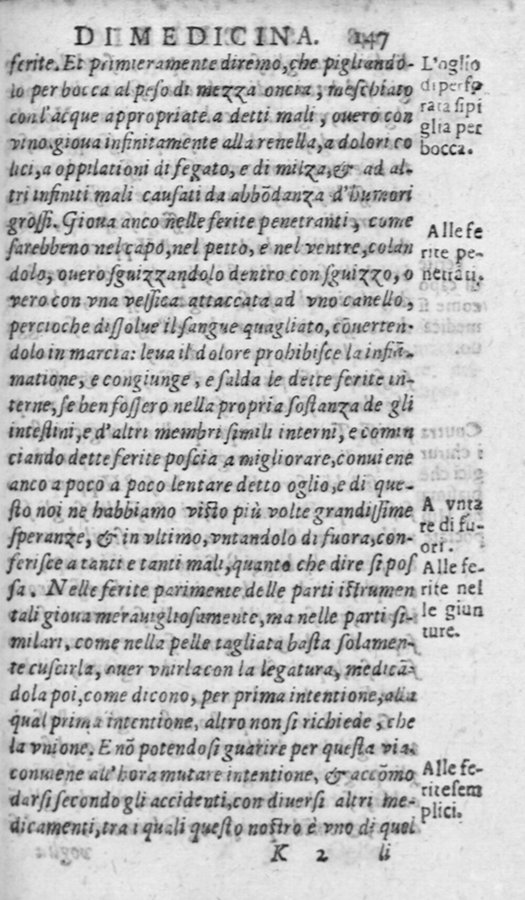 DI MEDICINA. 147
ferite. Et primieramente diremo, che pigliando-
lo per bocca al peso di mezza oncia, meschiato
con l'acque appropriate a detti mali, ouero con
vino. gioua infinitamente alla renella, a dolori co
lici, a oppilationi di fegato, e di milza, & ad al-
tri infiniti mali causati da abbõdanza d'humori
grossi. Gioua anco nelle ferite penetranti, come
sarebbeno nel capo, nel petto, e nel ventre, colan
dolo, ouero sguizzandolo dentro con sguizzo, o
vero con vna vessica attaccata ad vno canello,
percioche dissolue il sangue quagliato, cõuerten-
dolo in marcia: leua il dolore prohibisce la infiã-
matione, e congiunge, e salda le dette ferite in-
terne, se ben fossero nella propria sostanza de gli
intestini, e d'altri membri simili interni, e comin
ciando dette ferite poscia a migliorare, conuiene
anco a poco a poco lentare detto oglio, e di que-
sto noi ne habbiamo visto più volte grandissime
speranze, & in vltimo, vntandolo di fuora, con-
ferisce a tanti e tanti mali, quanto che dire si pos
sa. Nelle ferite parimente delle parti istrumen
tali gioua merauigliosamente, ma nelle parti si-
milari, come nella pelle tagliata basta solamen-
te cuscirla, ouer vnirla con la legatura, medicã-
dola poi, come dicono, per prima intentione, alla
qual prima intentione, altro non si richiede, che
la vnione. E nõ potendosi guarire per questa via.
conuiene all'hora mutare intentione, & accõmo
darsi secondo gli accidenti, con diuersi altri me-
dicamenti, tra i quali questo nostro è vno di quei
K 2 li
L'oglio
di perfo
rata si pi
glia per
bocca.
Alle fe
rite pe-
netrãti.
A vnta
re di fu-
ori.
Alle fe-
rite nel
le giun
ture.
Alle fe-
rite sem
plici.